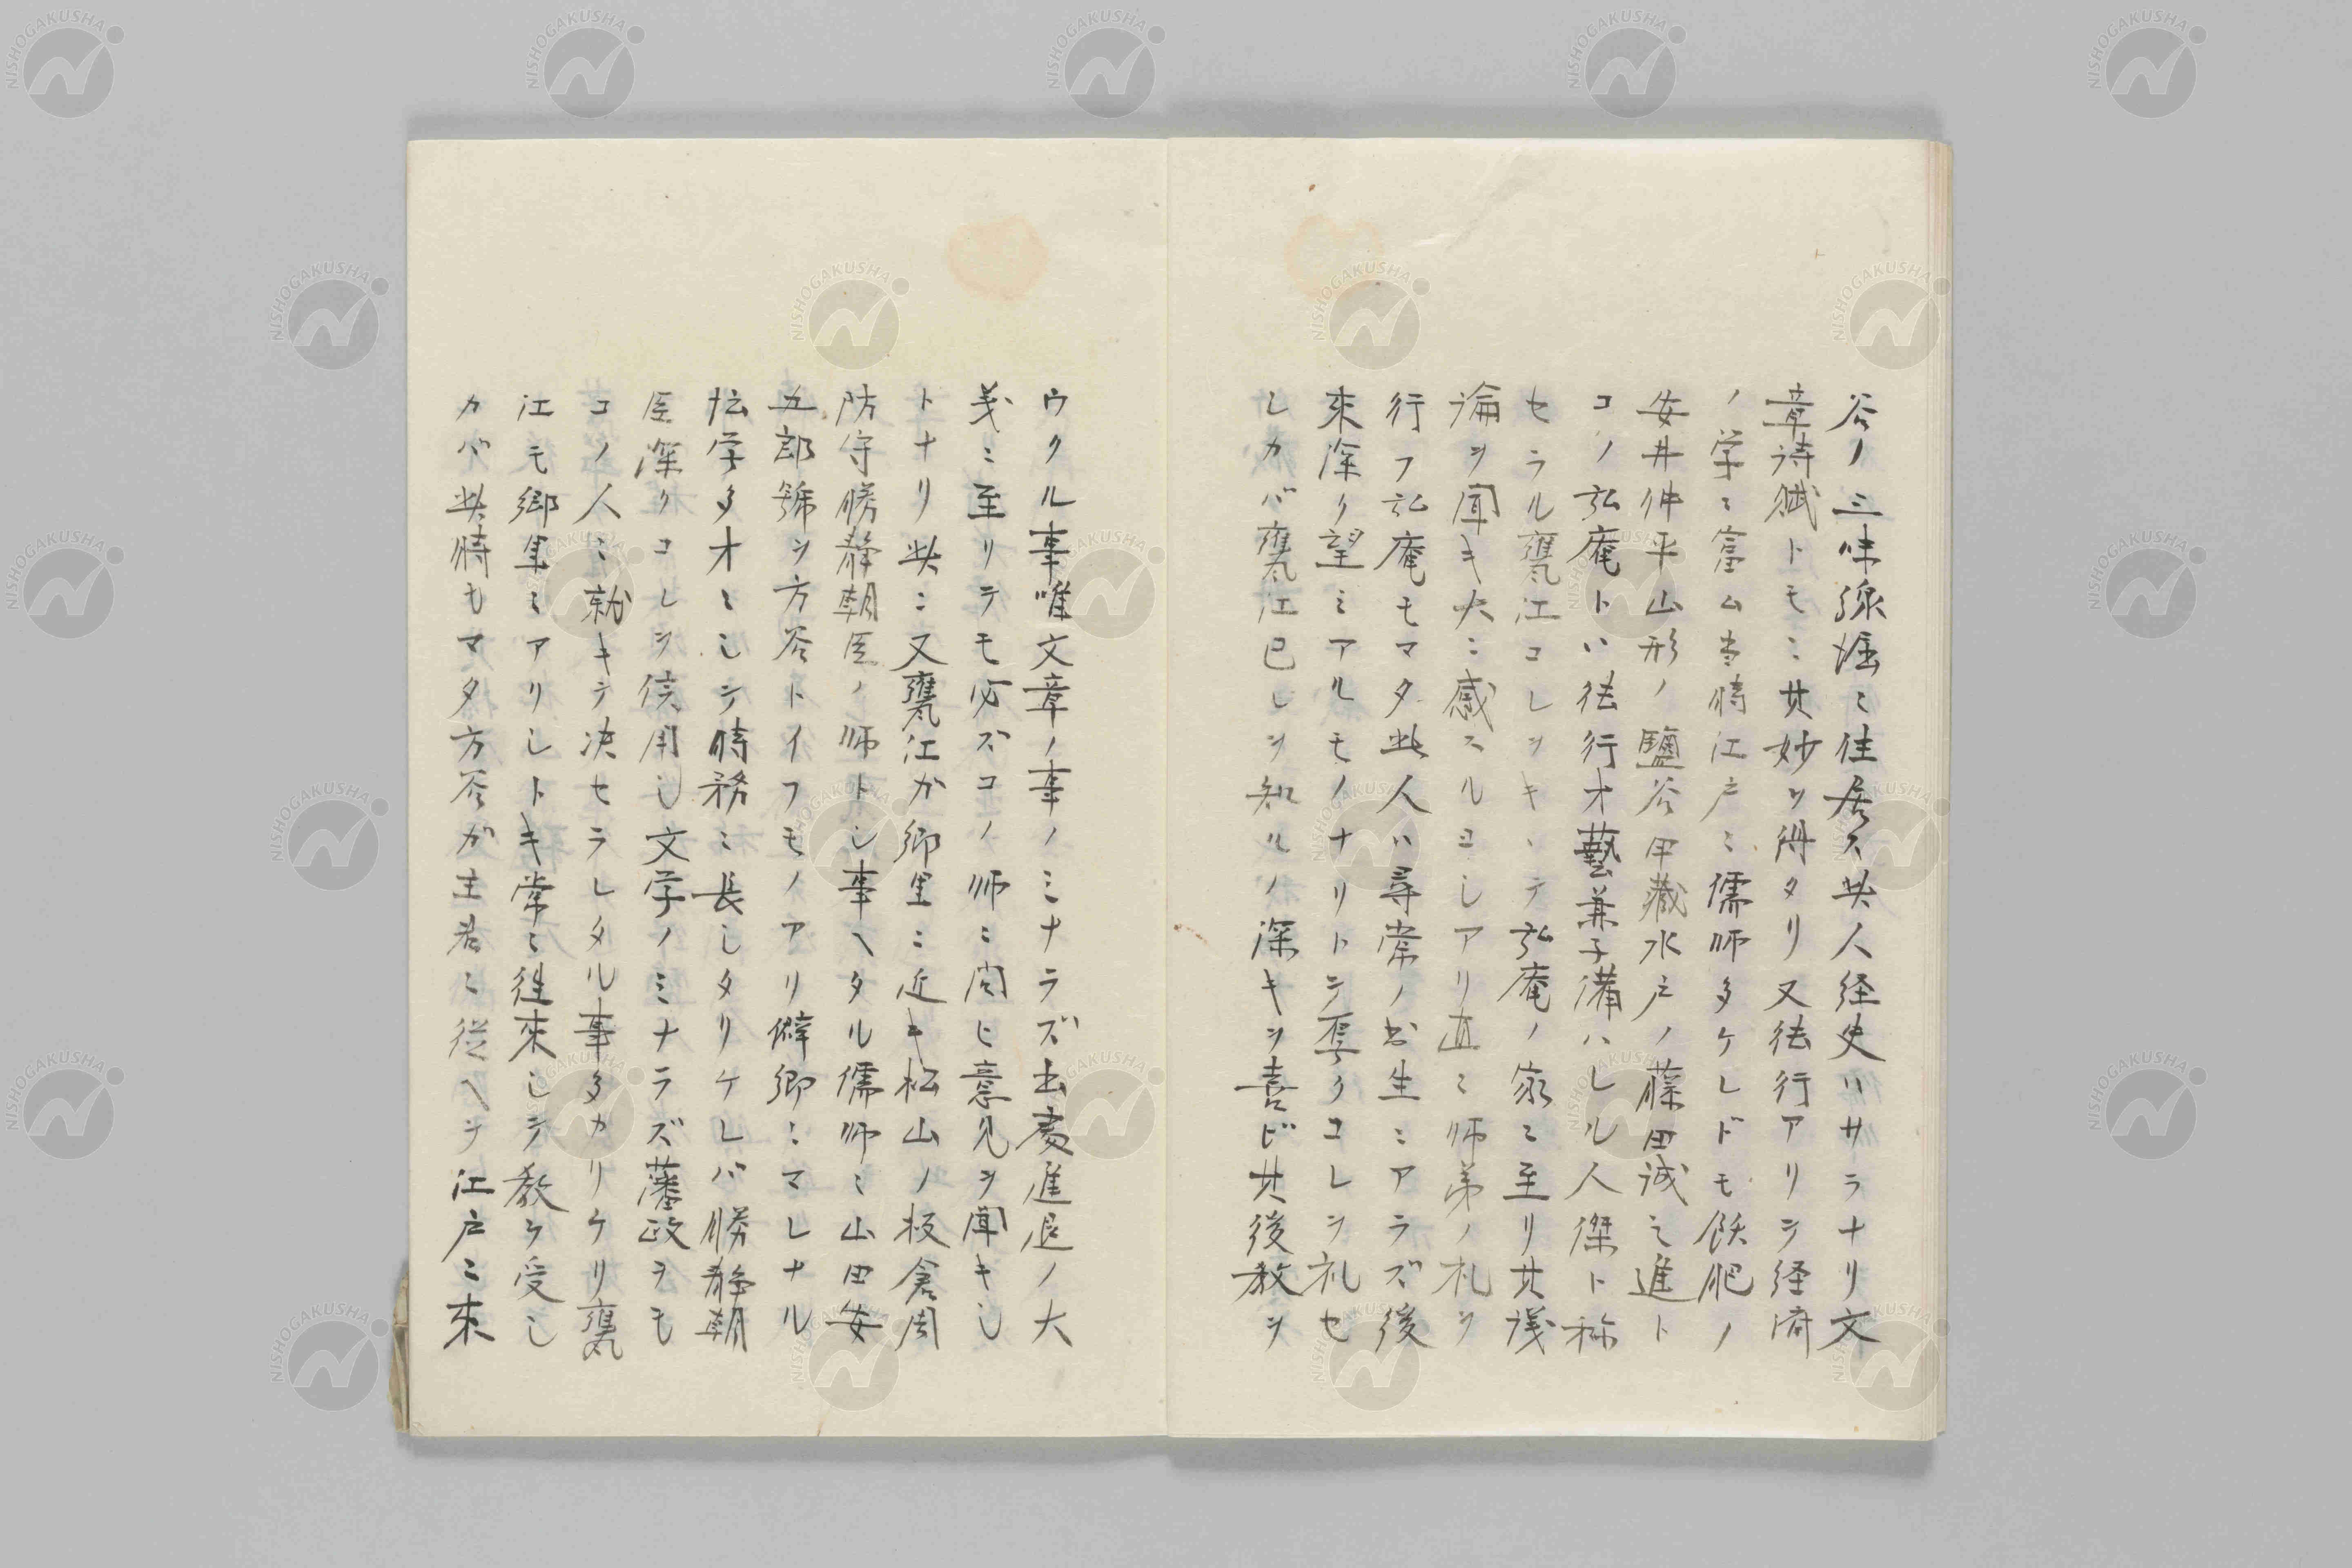 谷ノ三味線堀ニ住居ス其人経史ハサラナリ文
章詩賦トモニ其妙ヲ得タリ又徳行アリシ経済
ノ学ニ富ム当時江戸ニ儒師多ケレドモ飫肥ノ
安井仲平山形ノ鹽谷甲藏水戸ノ藤田誠之進ト
コノ弘庵トハ徳行才藝兼子備ハレル人傑ト称
セラル甕江コレヲキヽテ弘庵ノ家ニ至リ其議
論ヲ聞キ大ニ感スルヨシアリ直ニ師弟ノ礼ヲ
行フ弘庵モマタ此人ハ尋常ノ書生ニアラズ後
來深ク望ミアルモノナリトシ厚クコレヲ礼セ
シカバ甕江已レヲ知ルノ深キヲ喜ビ其後教ヲ
ウクル事唯文章ノ事ノミナラズ出處進退ノ大
義ニ至リテモ必ズコノ師ニ問ヒ意見ヲ聞キシ
トナリ此ニ又甕江カ郷里ニ近キ松山ノ板倉周
防守勝静朝臣ノ師トシ事ヘタル儒師ニ山田安
五郎號ヲ方谷トイフモノアリ僻郷ニマレナル
広学多才ニシテ時務ニ長シタリケレバ勝静朝
臣深クコレヲ信用シ文学ノミナラズ藩政ヲモ
コノ人ニ就キテ决セラレタル事多カリケリ甕
江モ郷里ニアリシトキ常ニ徃來シテ教ケ受シ
カバ此時もマタ方谷ガ主君ニ従ヘテ江戸ニ來
NISHOGAKUSHA